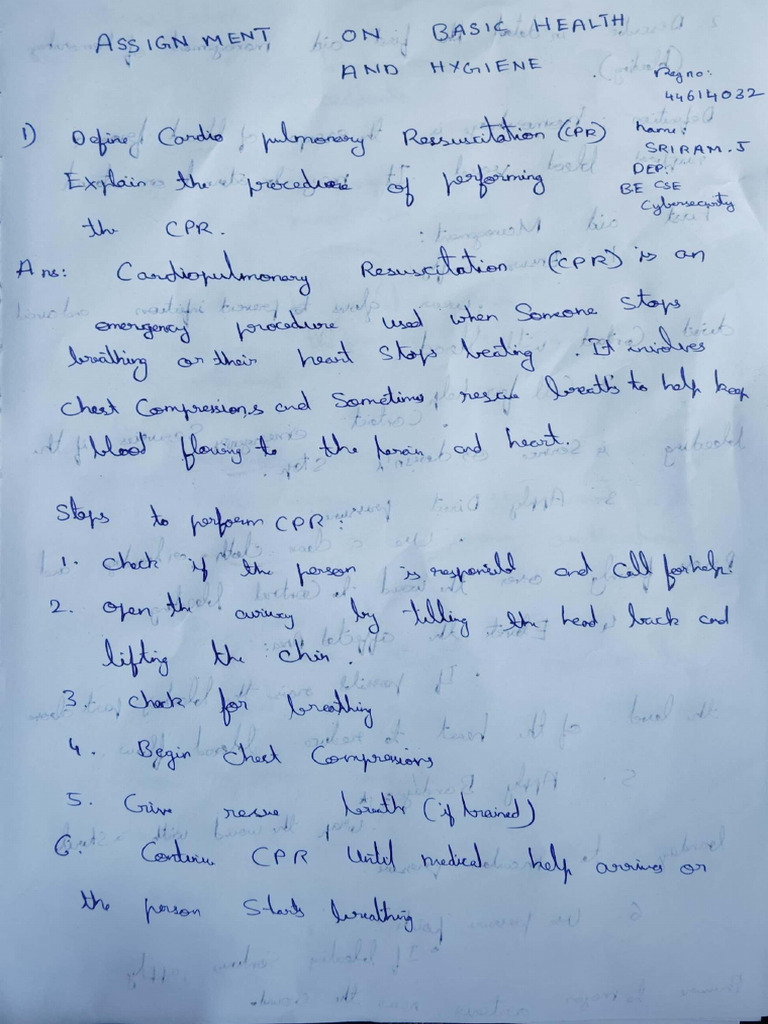 ASSIGNMENT ON BASIC HEALTH
AND HYGIENE
Reg no:
44614032
Name:
SRIRAM.J
DEP:
BE CSE
Cybersecurity
1) Define Cardio pulmonary Ressuscitation (CPR)
Explain the procedure of performing
the CPR.
Ans: Cardiopulmonary Resuscitation (CPR) is an
emergency procedure used when Someone Stops
breathing or their heart Stops beating. It involves
chest Compressions and Sometimes rescue breaths to help keep
blood flowing to the brain and heart.
Steps to perform CPR:
1. check if the person is and call for help.
2. open the by tilling the head back and
lifting the chin.
3. check for breathing
4. Begin chest Compressions
5. Give rescue breath (if trained)
6. Continue CPR Until medical help arrives or
the person Starts breathing